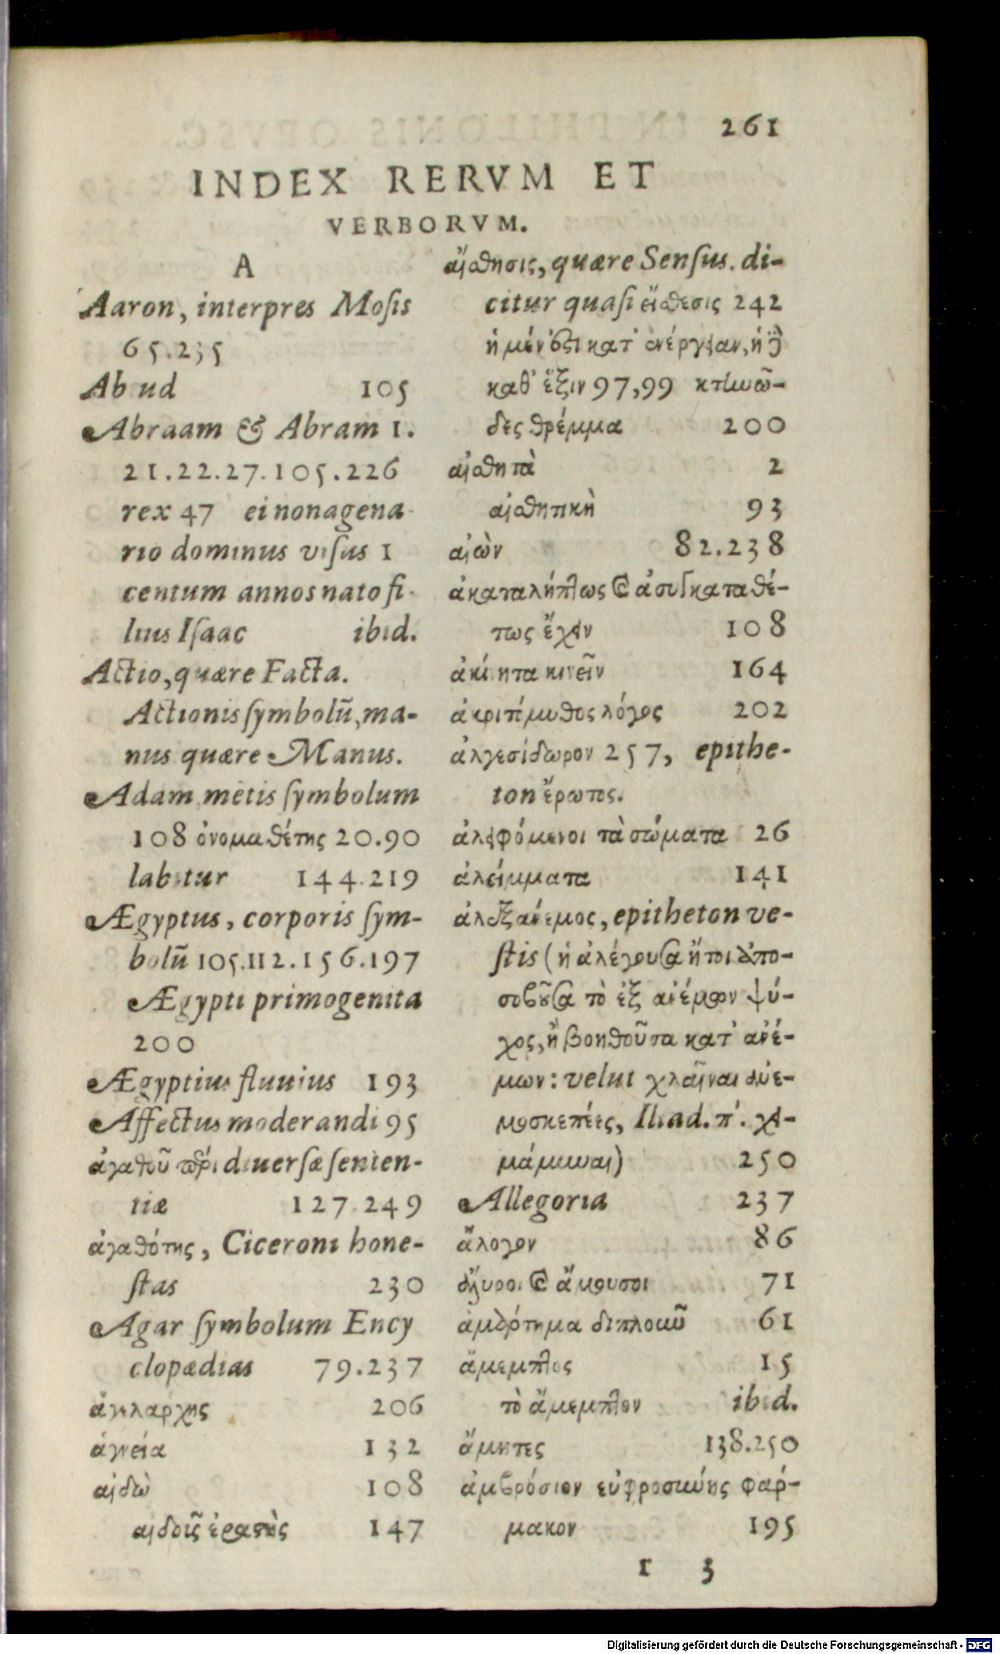 261
INDEX RERVM ET
VERBORVM.
A
Aaron, interpres Mosis
65.235
Ab ud 105
Abraam & Abram 1.
21.22.27.105.226
rex 47 ei nonagena-
rio dominus visus 1
centum annos nato fi-
lius Isaac ibid.
Actio, quære Facta.
Actionis symbolũ, ma-
nus quære Manus.
Adam mẽtis symbolum
108 ὀνομαθέτης 20.90
labitur 144.219
Ægyptus, corporis sym-
bolũ 105.112.156.197
Ægypti primogenita
200
Ægyptius fluuius 193
Affectus moderandi 95
ἀγαθοῦ περὶ diuersæ senten-
tiæ 127.249
ἀγαθότης, Ciceroni hone-
stas 230
Agar symbolum Ency
clopædias 79.237
ἀγελάρχης 206
ἁγνεία 132
αἰδὼ 108
αἰδοῖς ἐραστὴς 147
αἴσθησις, quære Sensus. di-
citur quasi εἴσθεσις 242
ἡ μέν ἐστι κατ' ἐνέργειαν, ἡ δὲ
καθ' ἕξιν 97,99 κτηνώ-
δες θρέμμα 200
αἰσθητὰ 2
αἰσθητικὴ 93
αἰὼν 82.238
ἀκαταλήπτως & ἀσυγκαταθέ-
τως ἔχειν 108
ἀκίνητα κινεῖν 164
ἀκριτόμυθος λόγος 202
ἀλγεσίδωρον 257, epithe-
ton ἔρωτος.
ἀλειφόμενοι τὰ σώματα 26
ἀλείμματα 141
ἀλεξάνεμος, epitheton ve-
stis (ἡ ἀλέγουσα ἤτοι ἀπο-
σοβοῦσα τὸ ἐξ ἀνέμων ψύ-
χος, ἢ βοηθοῦσα κατ' ἀνέ-
μων: velut χλαῖναι ἀνε-
μοσκεπέες, Iliad. π'. χει-
μάμυναι) 250
Allegoria 237
ἄλογον 86
ἄλυροι & ἄμουσοι 71
ἁμάρτημα διπλοῦν 61
ἄμεμπτος 15
τὸ ἄμεμπτον ibid.
ἄμητες 138.250
ἀμβρόσιον εὐφροσύνης φάρ-
μακον 195
r 3
Digitalisierung gefördert durch die Deutsche Forschungsgemeinschaft - DFG